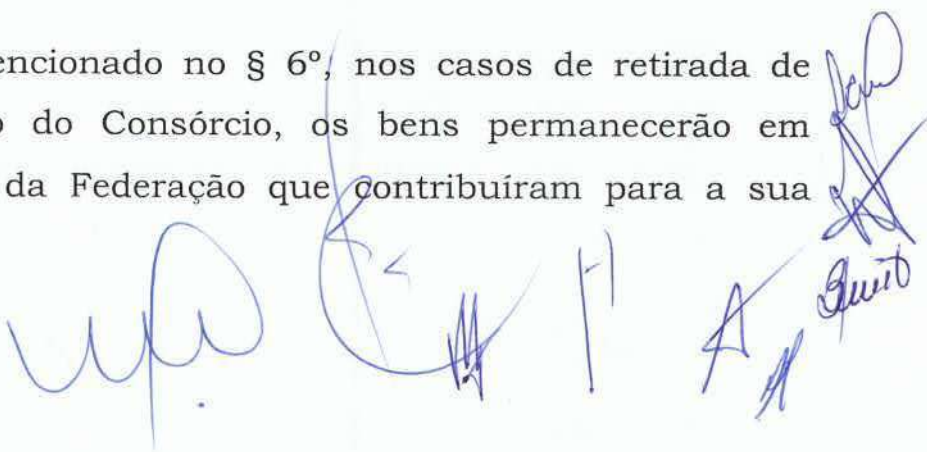 encionado no § 6º, nos casos de retirada de
o do Consórcio, os bens permanecerão em
da Federação que contribuíram para a sua